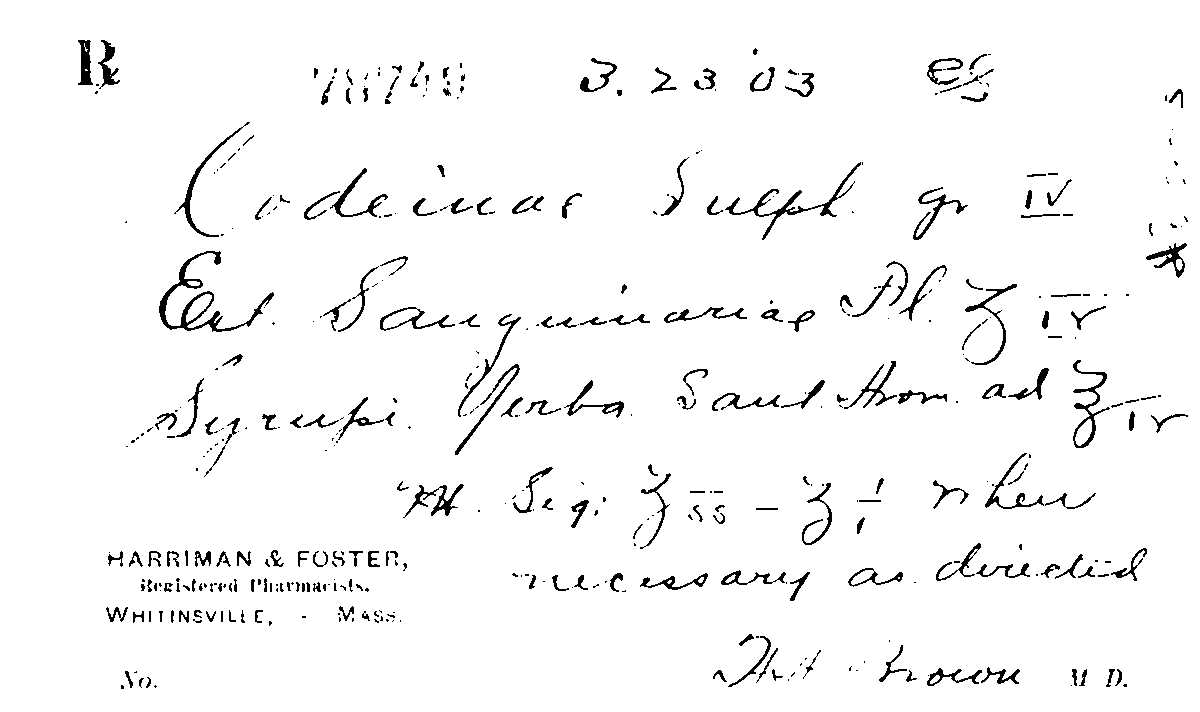 ℞ 78749 3. 23 '03
Codeinae Sulph. gr IV
Ext. Sanguinariae Fl. ʒ IV
Syrupi Yerba Sant Arom ad ℥ IV
M. Sig: ʒ ss – ʒ i when
necessary as directed
HARRIMAN & FOSTER,
Registered Pharmacists,
WHITINSVILLE, - MASS.
No.
Brown M. D.